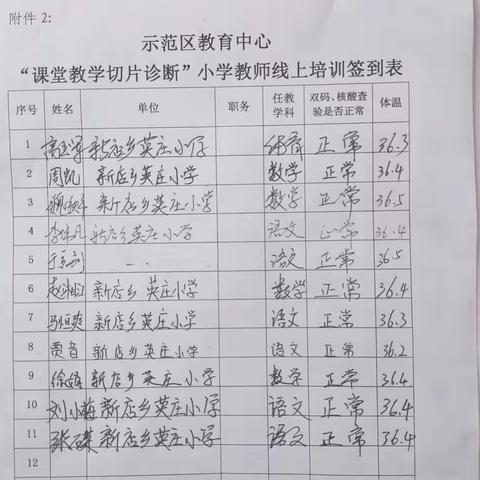 附件 2:
示范区教育中心
“课堂教学切片诊断”小学教师线上培训签到表
序号 姓名 单位 职务 任教学科 双码、核酸查验是否正常 体温
1 新店乡英庄小学 体育 正常 36.3
2 周凯 新店乡英庄小学 数学 正常 36.4
3 新店乡英庄小学 数学 正常 36.5
4 新店乡英庄小学 语文 正常 36.4
5 语文 正常 36.5
6 新店乡英庄小学 数学 正常 36.4
7 马恒爽 新店乡英庄小学 语文 正常 36.3
8 贾音 新店乡英庄小学 语文 正常 36.2
9 新店乡英庄小学 数学 正常 36.4
10 刘小梅 新店乡英庄小学 语文 正常 36.4
11 新店乡英庄小学 语文 正常 36.4
12